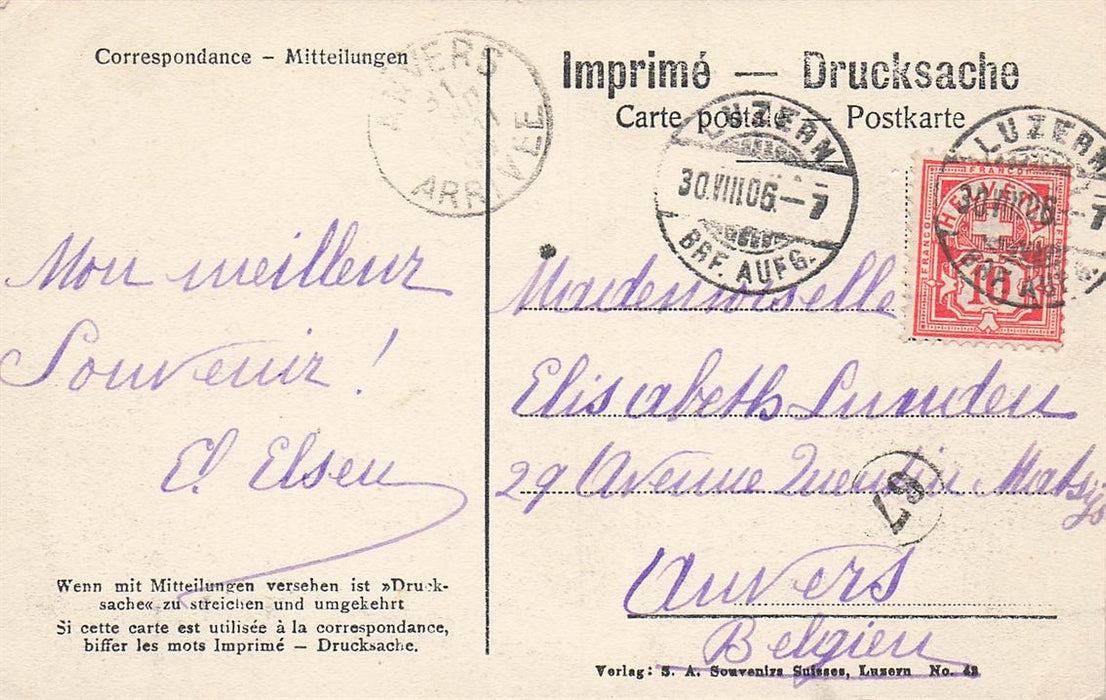 Correspondance – Mitteilungen
ANVERS
ARRIVÉE
Imprimé — Drucksache
Carte postale — Postkarte
LUZERN
30.VIII.06.–7
BRF. AUFG.
LUZERN
30.VIII.06.–7
BRF. AUFG.
FRANCO
HELVETIA
FRANCO
FRANCO
10
Mon meilleur
Souvenir !
E. Elsen
Mademoiselle
Elisabeth Lunden
29 Avenue Quentin Matsijs
67
Anvers
Belgien
Wenn mit Mitteilungen versehen ist »Druck-
sache« zu streichen und umgekehrt
Si cette carte est utilisée à la correspondance,
biffer les mots Imprimé – Drucksache.
Verlag: S. A. Souvenirs Suisses, Luzern No. 43